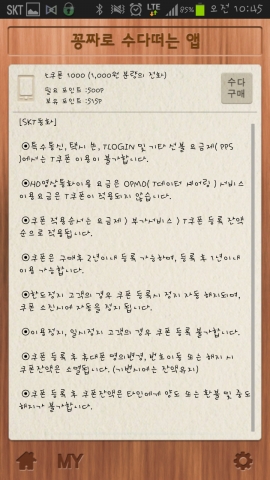 SKT LTE 85% 오전 10:45
공짜로 수다떠는 앱
t쿠폰 1000 (1,000원 분량의 전화)
필요 포인트 :500P
보유 포인트 :515P
수다
구매
[SKT통화]
◉특수통신, 택시 폰, TLOGIN 및 기타 선불 요금제( PPS
)에서는 T쿠폰 이용이 불가합니다.
이용요금은 T쿠폰이 적용되지 않습니다.
◉쿠폰 적용순서는 요금제 > 부가서비스 > T쿠폰 등록 잔액
순으로 적용됩니다.
◉쿠폰은 구매후 2년이내 등록 가능하며, 등록 후 1년이내
이용 가능합니다.
◉한도정지 고객의 경우 쿠폰 등록시 정지 자동 해지되며,
쿠폰 소진시에 자동을 정지 됩니다.
◉이용정지, 일시정지 고객의 경우 쿠폰 등록 불가합니다.
◉쿠폰 등록 후 휴대폰 명의변경, 번호이동 또는 해지 시
쿠폰잔액은 소멸됩니다. (기변시에는 잔액유지)
◉쿠폰 등록 후 쿠폰잔액은 타인에게 양도 또는 환불 및 중도
해지가 불가합니다.
MY